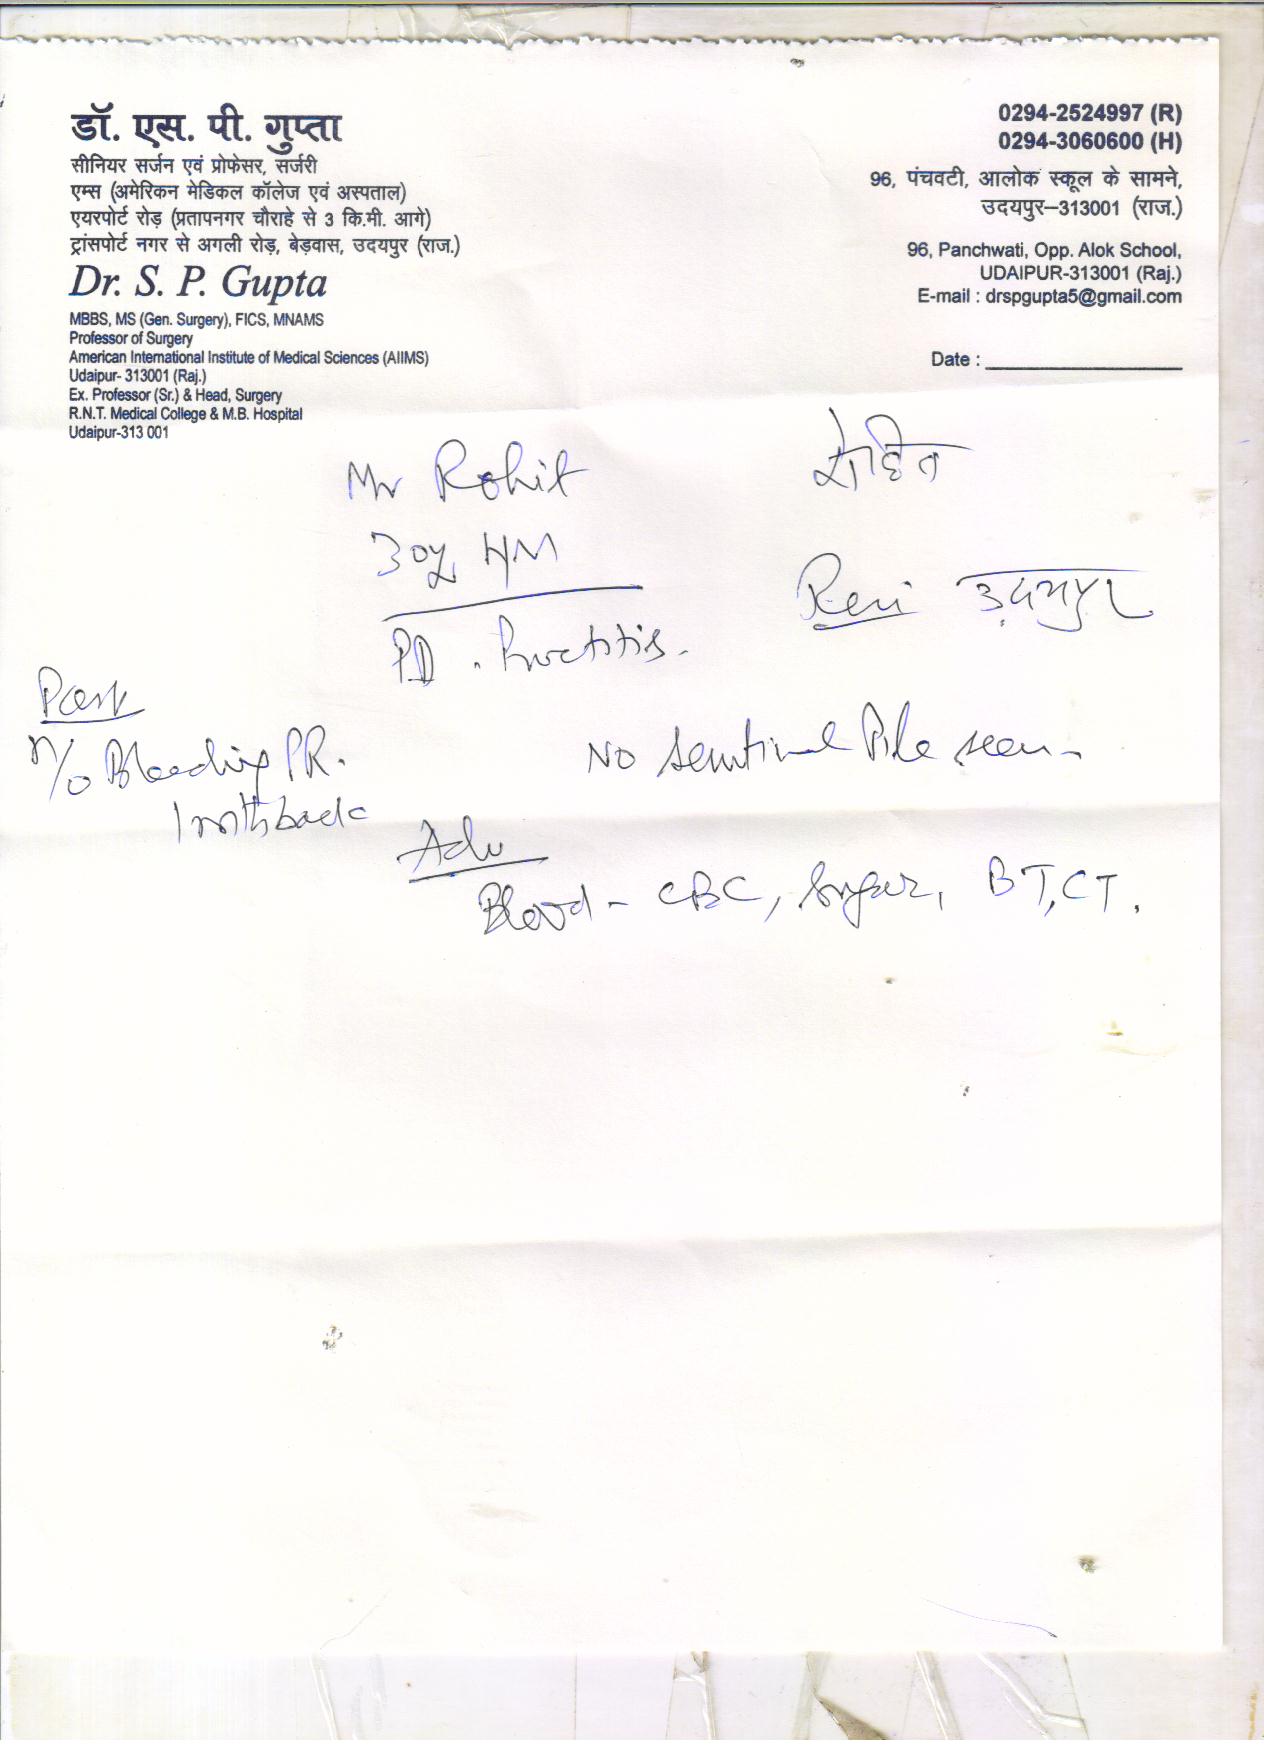 डॉ. एस. पी. गुप्ता
सीनियर सर्जन एवं प्रोफेसर, सर्जरी
एम्स (अमेरिकन मेडिकल कॉलेज एवं अस्पताल)
एयरपोर्ट रोड़ (प्रतापनगर चौराहे से 3 कि.मी. आगे)
ट्रांसपोर्ट नगर से अगली रोड़, बेड़वास, उदयपुर (राज.)
Dr. S. P. Gupta
MBBS, MS (Gen. Surgery), FICS, MNAMS
Professor of Surgery
American International Institute of Medical Sciences (AIIMS)
Udaipur- 313001 (Raj.)
Ex. Professor (Sr.) & Head, Surgery
R.N.T. Medical College & M.B. Hospital
Udaipur-313 001
0294-2524997 (R)
0294-3060600 (H)
96, पंचवटी, आलोक स्कूल के सामने,
उदयपुर–313001 (राज.)
96, Panchwati, Opp. Alok School,
UDAIPUR-313001 (Raj.)
E-mail : drspgupta5@gmail.com
Date :
Mr Rohit
रोहित
30y HM
उदयपुर
PD. Proctitis.
Past
H/o Bleeding PR.
1 mth back
No Sentinal Pile seen
Adv
Blood - CBC, Sugar, BT, CT.